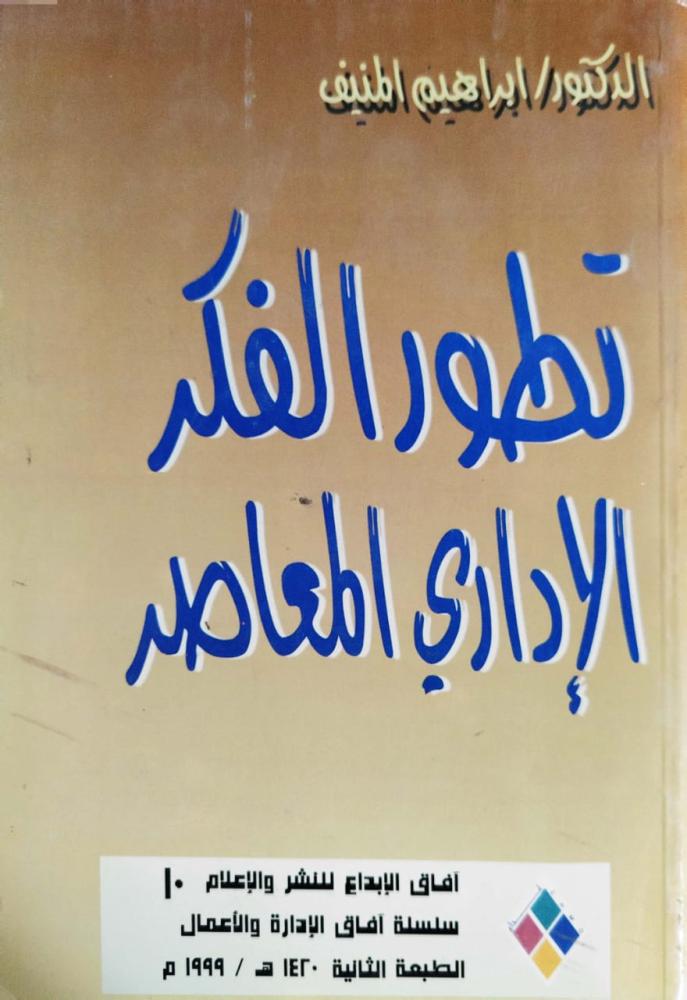 الدكتور/ابراهيم المنيف
تطور الفكر
الإداري المعاصر
آفاق الإبداع للنشر والإعلام ١٠
سلسلة آفاق الإدارة والأعمال
الطبعة الثانية ١٤٢٠ هـ / ١٩٩٩ م